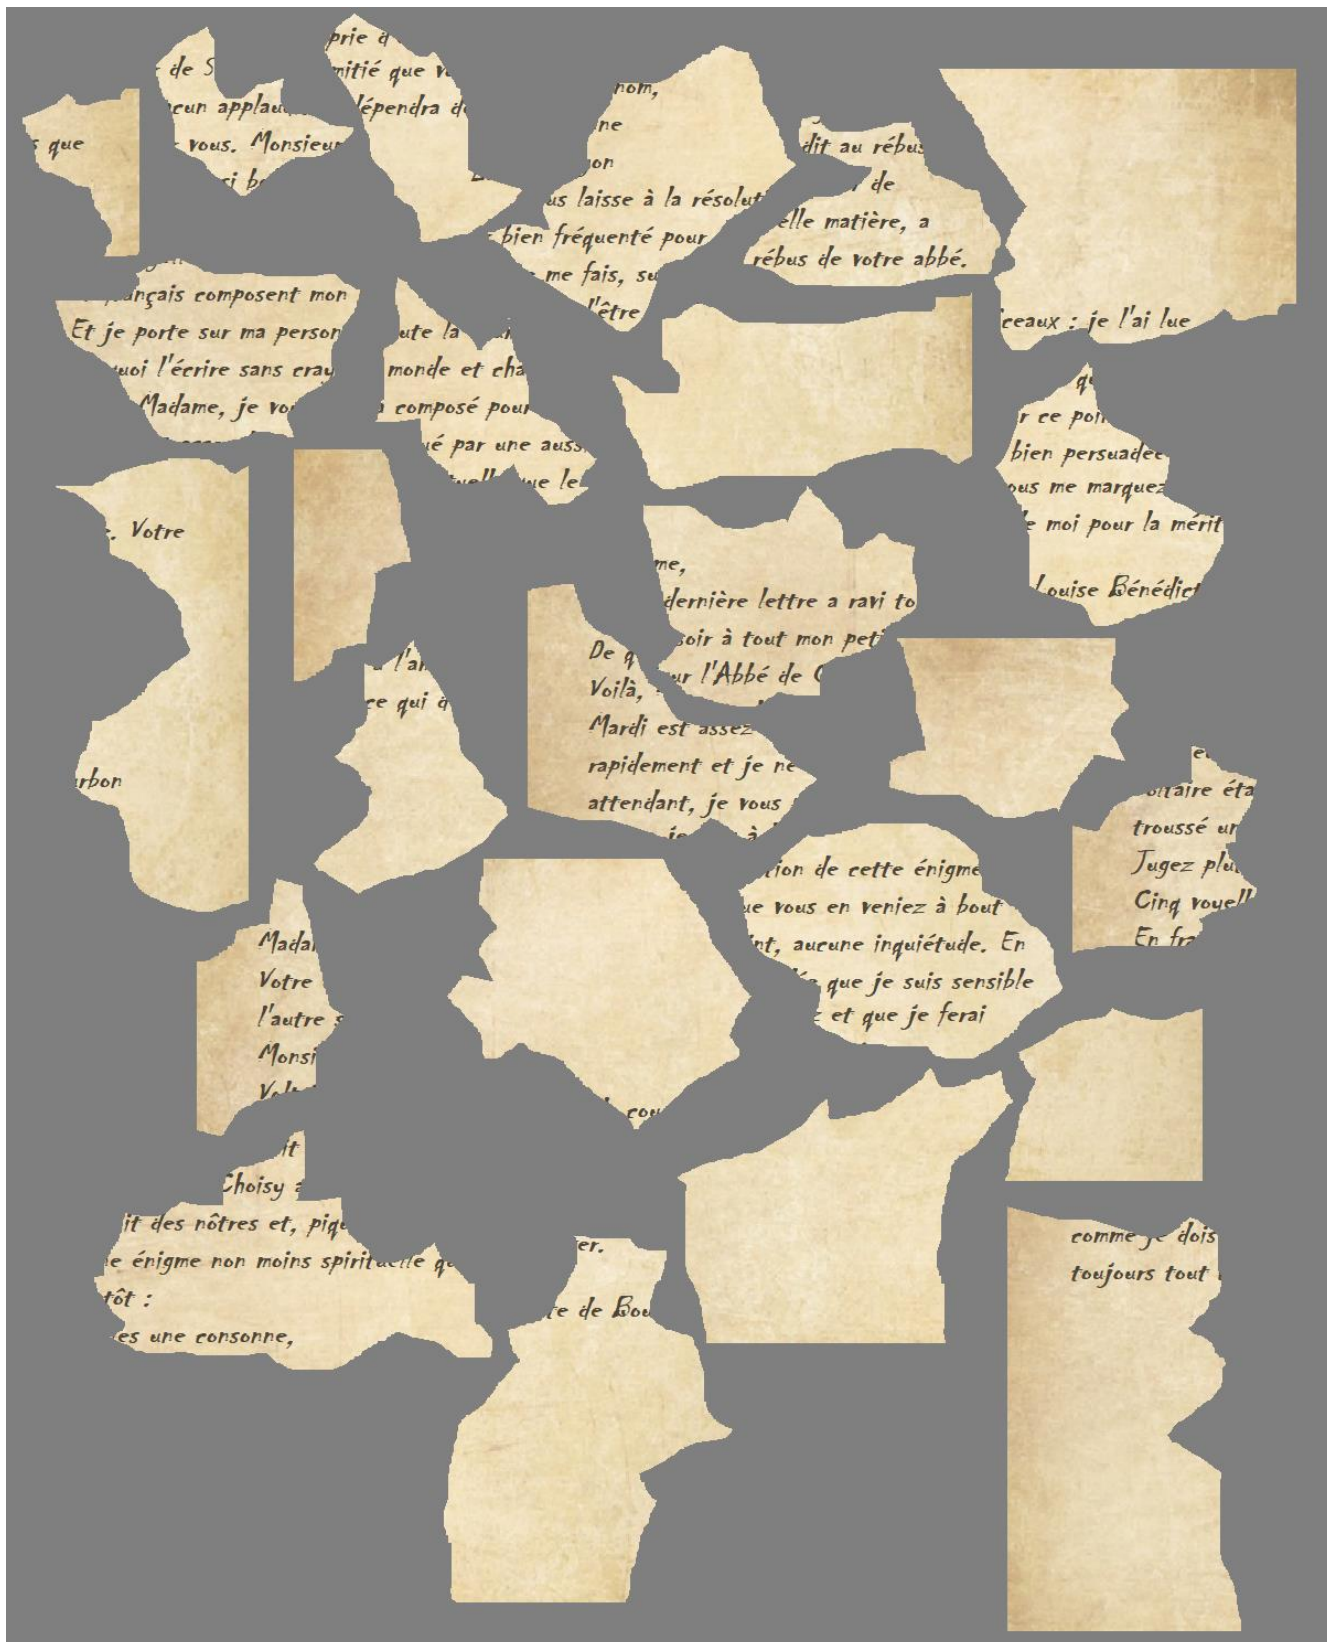 s que
de S
cun applau
vous. Monsieur
si b
prie d
mitié que v
épendra d
nom,
ne
on
us laisse à la résolut
bien fréquenté pour
me fais, su
l'être
dit au rébus
de
elle matière, a
rébus de votre abbé.
ceaux : je l'ai lue
ançais composent mon
Et je porte sur ma person
uoi l'écrire sans cray
Madame, je vo
ute la
monde et cha
composé pour
ué par une auss
tuelle que le
qu
r ce poin
bien persuadée
ous me marquez
e moi pour la mérit
Louise Bénédict
. Votre
rbon
me,
dernière lettre a ravi to
soir à tout mon peti
ur l'Abbé de C
De q
Voilà,
Mardi est assez
rapidement et je ne
attendant, je vous
je à
l'am
ce qui d
et
oltaire éta
troussé un
Jugez plu
Cinq voyell
En fra
tion de cette énigme
ue vous en veniez à bout
nt, aucune inquiétude. En
que je suis sensible
z et que je ferai
Mada
Votre
l'autre s
Monsi
Volt
cou
it
Choisy a
it des nôtres et, piqu
e énigme non moins spirituelle qu
tôt :
es une consonne,
er.
te de Bou
comme je dois
toujours tout